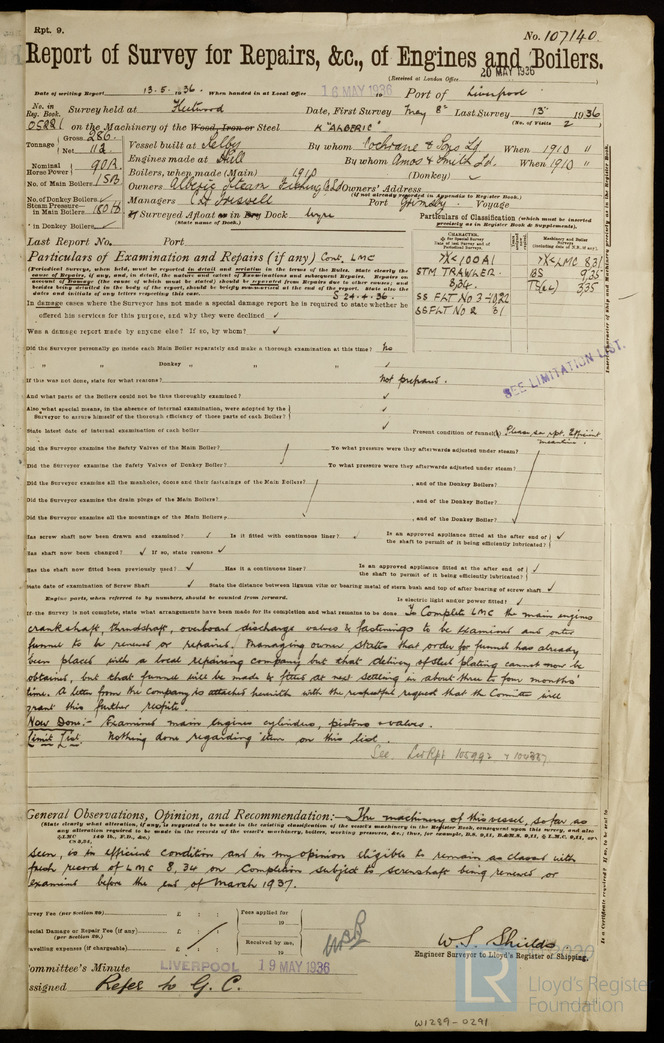 Rpt. 9.
No. 107140.
Report of Survey for Repairs, &c., of Engines and Boilers.
(Received at London Office 20 MAY 1936
Date of writing Report 13.5.1936. When handed in at Local Office 16 MAY 1936 Port of Liverpool
No. in Reg. Book. Survey held at Fleetwood Date, First Survey May 8th Last Survey 13th 1936
on the Machinery of the Wood, Iron or Steel K "ALBERIC" (No. of Visits 2)
Tonnage Gross 286. Net 112 Vessel built at Selby By whom Cochrane & Sons Ld When 1910
Nominal Horse Power 90 Engines made at Hull By whom Amos & Smith Ld. When 1910
No. of Main Boilers 1SB Boilers, when made (Main) 1910 (Donkey) ✓
No. of Donkey Boilers ✓ Owners Alberic Steam Fishing Co Ld Owners' Address
(if not already recorded in Appendix to Register Book.)
Steam Pressure in Main Boilers 180 lb Managers Port Grimsby Voyage
in Donkey Boilers ✓ Surveyed Afloat or in Dry Dock Wyre
(State name of Dock.)
Particulars of Classification (which must be inserted precisely as in Register Book & Supplements).
Last Report No. Port
Particulars of Examination and Repairs (if any) Cont. LMC
100A1
STM TRAWLER
8,34
SS FLT No 3-10,22
SS FLT No 2 31
LMC 8,31
BS 9,35
TS(CL) 3,35
S 24.4.36.
In damage cases where the Surveyor has not made a special damage report he is required to state whether he
offered his services for this purpose, and why they were declined ✓
Was a damage report made by anyone else? If so, by whom? ✓
Did the Surveyor personally go inside each Main Boiler separately and make a thorough examination at this time? No
" " Donkey " " " "
If this was not done, state for what reasons? Not prepared.
SEE LIMITATION LIST.
And what parts of the Boilers could not be thus thoroughly examined? ✓
Also what special means, in the absence of internal examination, were adopted by the
Surveyor to assure himself of the thorough efficiency of those parts of each Boiler? ✓
State latest date of internal examination of each boiler ✓ Present condition of funnel(s) Please see rpt. Efficient meantime.
Did the Surveyor examine the Safety Valves of the Main Boiler? To what pressure were they afterwards adjusted under steam?
Did the Surveyor examine the Safety Valves of Donkey Boiler? To what pressure were they afterwards adjusted under steam?
Did the Surveyor examine all the manholes, doors and their fastenings of the Main Boilers? , and of the Donkey Boilers?
Did the Surveyor examine the drain plugs of the Main Boilers? , and of the Donkey Boiler?
Did the Surveyor examine all the mountings of the Main Boilers? , and of the Donkey Boiler?
Has screw shaft now been drawn and examined? ✓ Is it fitted with continuous liner? ✓ Is an approved appliance fitted at the after end of the shaft to permit of it being efficiently lubricated? ✓
Has shaft now been changed? ✓ If so, state reasons ✓
Has the shaft now fitted been previously used? ✓ Has it a continuous liner? Is an approved appliance fitted at the after end of the shaft to permit of it being efficiently lubricated? ✓
State date of examination of Screw Shaft ✓ State the distance between lignum vitæ or bearing metal of stern bush and top of after bearing of screw shaft ✓
Engine parts, when referred to by numbers, should be counted from forward. Is electric light and/or power fitted? ✓
If the Survey is not complete, state what arrangements have been made for its completion and what remains to be done To Complete LMC the main engines
crankshaft, thrustshaft, overboard discharge valves & fastenings to be examined and outer
funnel to be renewed or repaired. Managing owner states that order for funnel has already
been placed with a local repairing company but that delivery of steel plating cannot now be
obtained, but that funnel will be made & fitted at next settling in about three to four months'
time. A letter from the Company is attached herewith with the respectful request that the Comittee will
grant this further respite.
Now Done:- Examined main engines cylinders, pistons & valves.
Limit List. Nothing done regarding item on this list.
See. LivRpt 105992 & 104387
General Observations, Opinion, and Recommendation:— The machinery of this vessel, so far as
seen, is in efficient condition and in my opinion eligible to remain as classed with
fresh record of LMC 8,34 on completion subject to screwshaft being renewed or
examined before the end of March 1937.
Survey Fee (per Section 29) £ : : Fees applied for
Special Damage or Repair Fee (if any) (per Section 29.) £ : :
Travelling expenses (if chargeable) £ : : Received by me,
W. S. Shields
Engineer Surveyor to Lloyd's Register of Shipping.
Committee's Minute LIVERPOOL 19 MAY 1936
Assigned Refer to G. C.
LR
Lloyd's Register
Foundation
W1289-0291